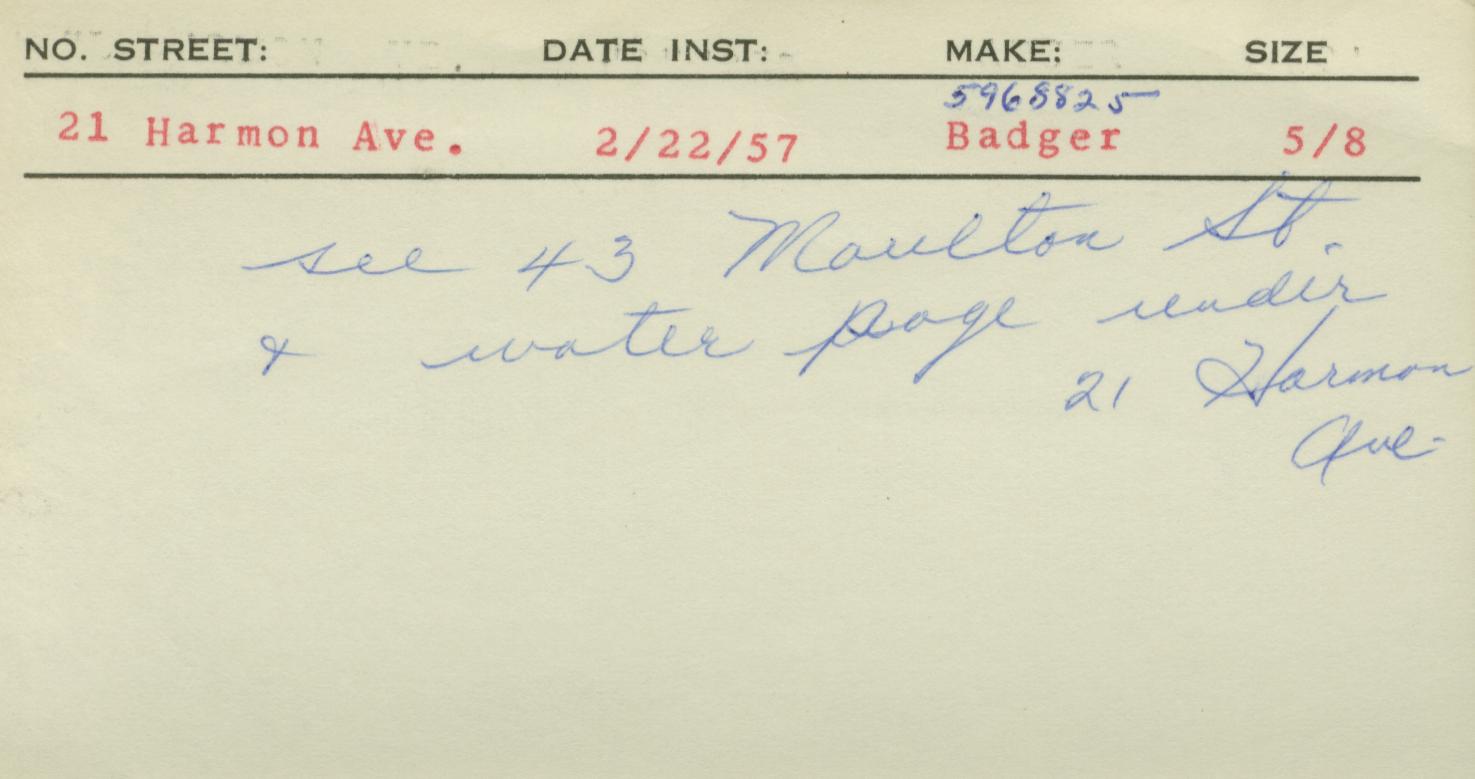 NO. STREET: DATE INST: MAKE: SIZE
5968825
21 Harmon Ave. 2/22/57 Badger 5/8
see 43 Moulton St.
& water page under
21 Harmon
Ave.